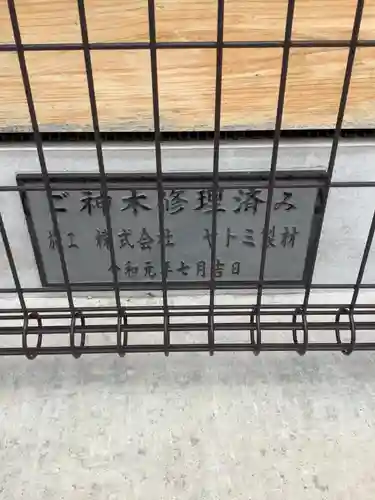 ご神木修理済み
施工 株式会社 ヤトミ製材
令和元年七月吉日